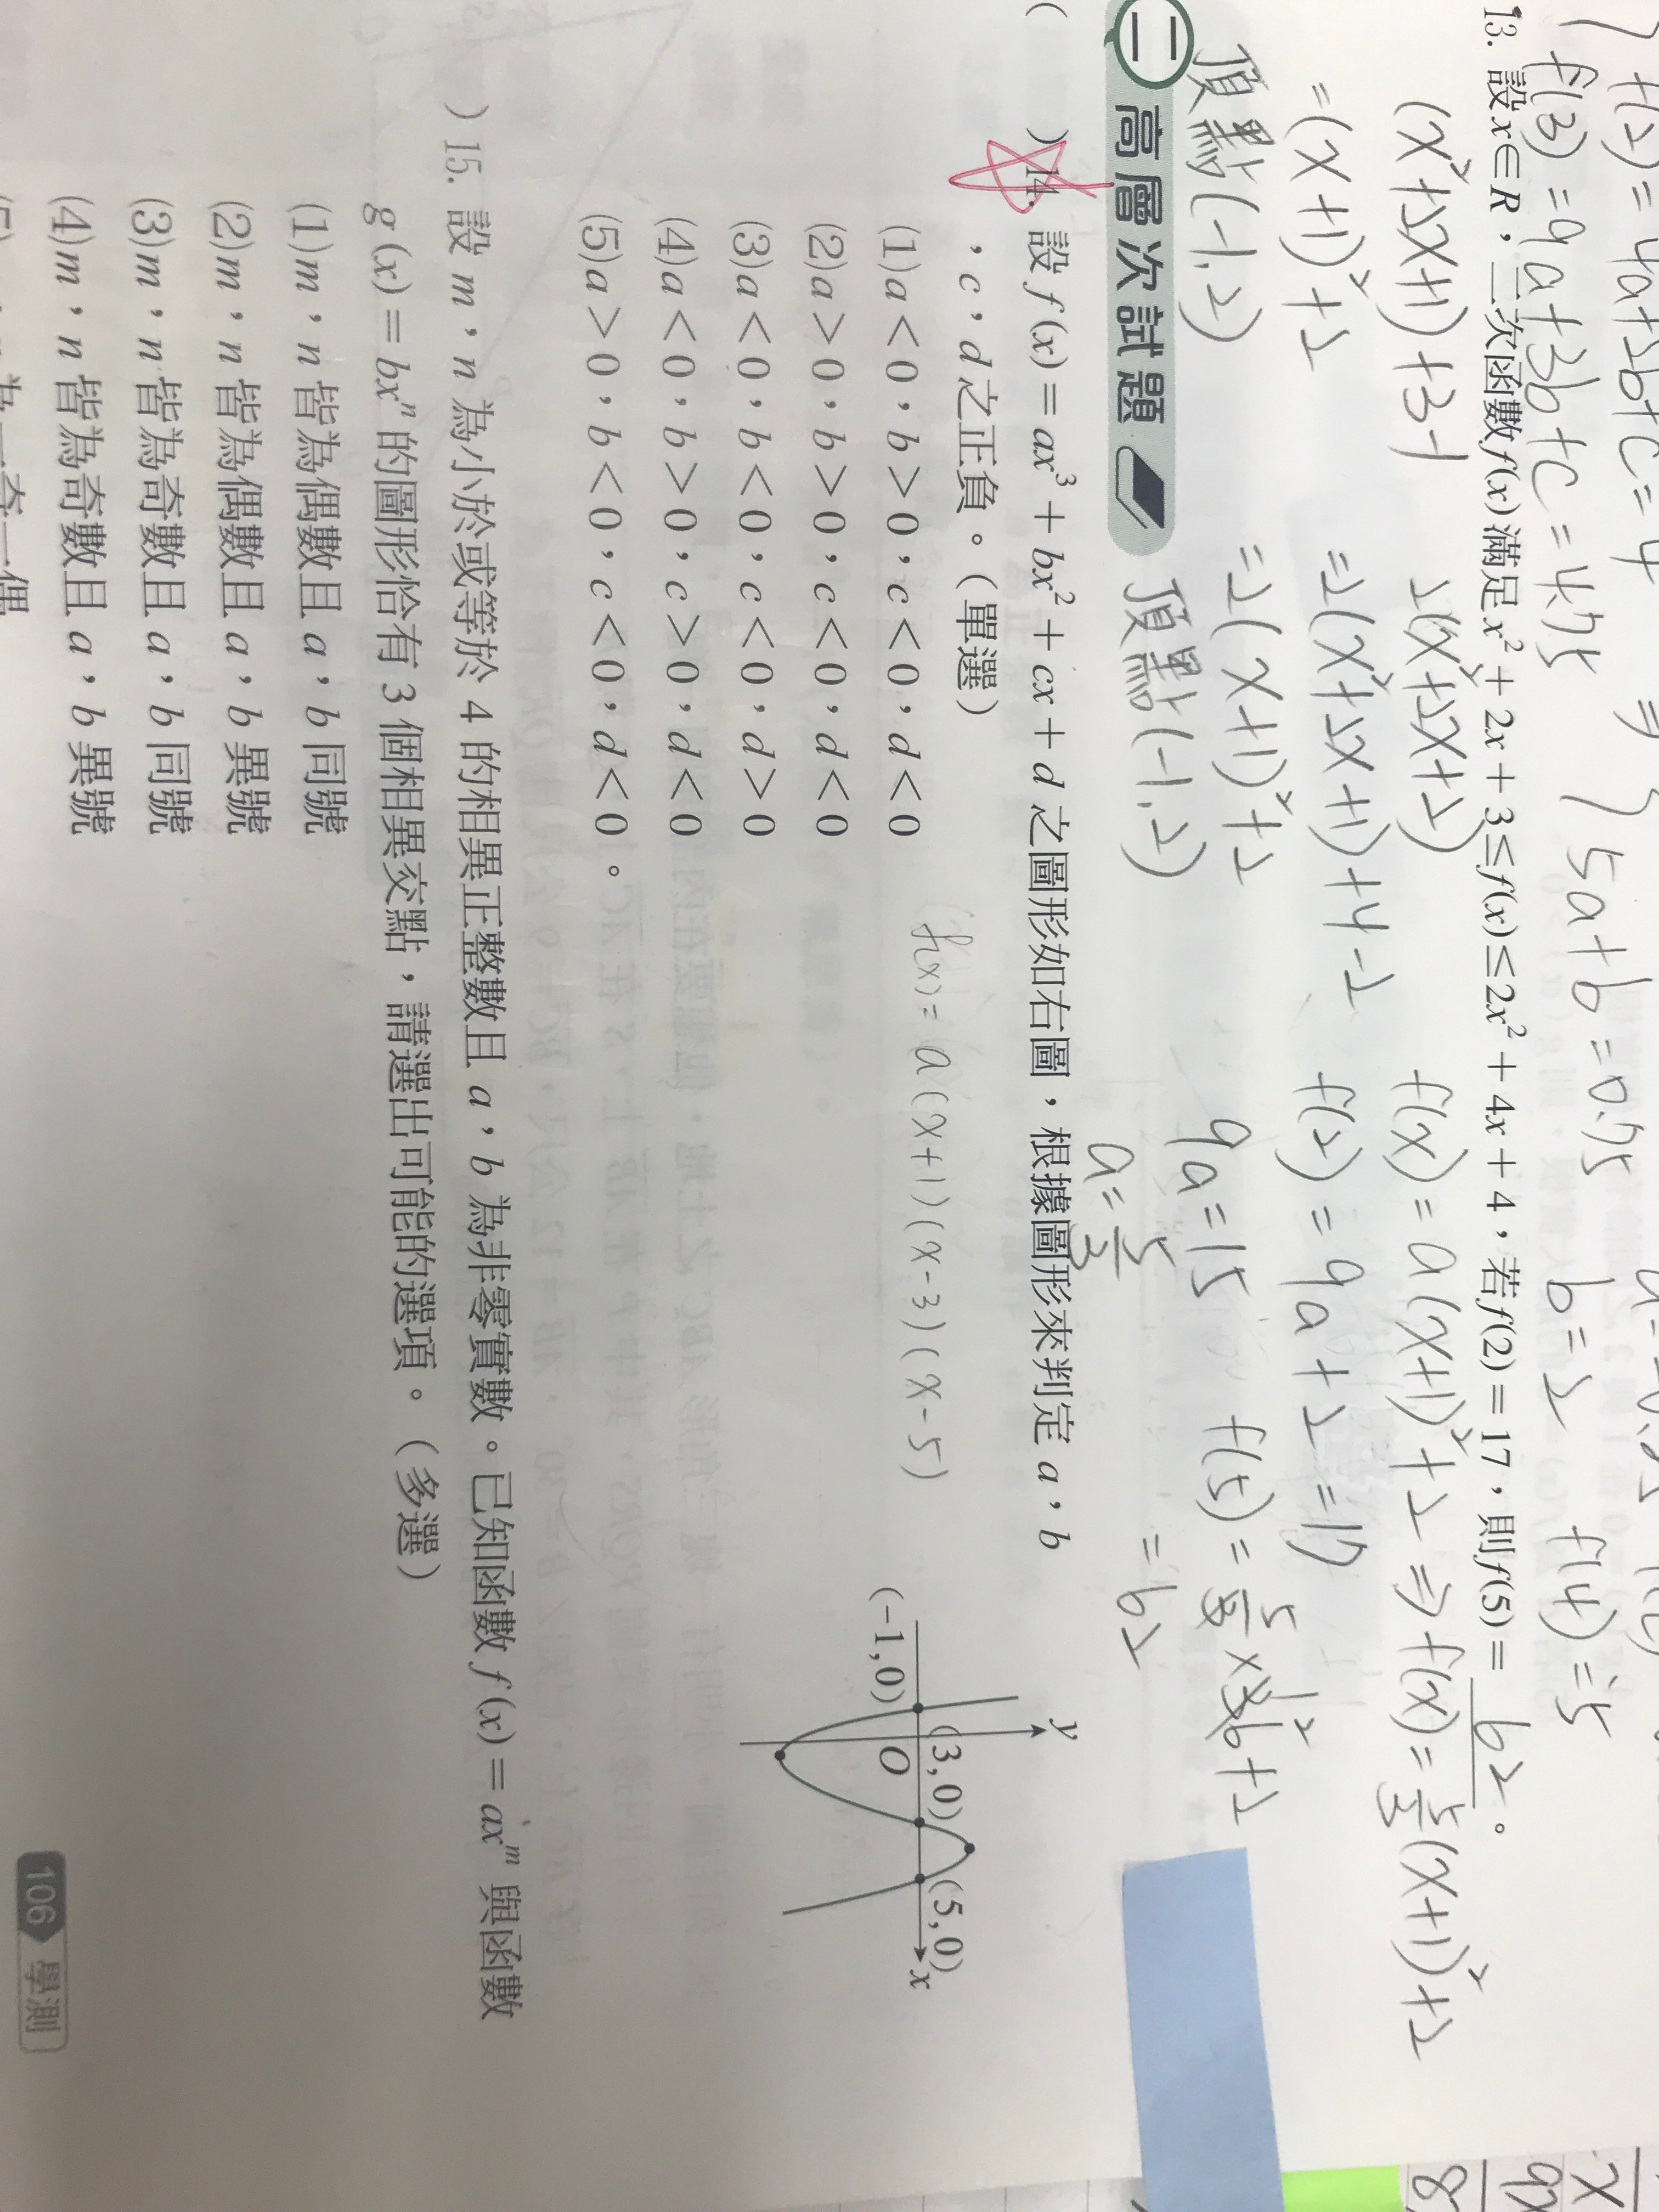 f(2)=4a+2b+c=4
f(3)=9a+3b+c=4.75
5a+b=0.75
b=2
f(4)=5
13. 設x∈R，二次函數f(x)滿足x²+2x+3≤f(x)≤2x²+4x+4，若f(2)=17，則f(5)= 62 。
(x²+2x+1)+3-1
=(x+1)²+2
頂點(-1,2)
2(x²+2x+2)
=2(x²+2x+1)+4-2
=2(x+1)²+2
頂點(-1,2)
f(x)=a(x+1)²+2 ⇒ f(x)=5/3(x+1)²+2
f(2)=9a+2=17
9a=15
a=5/3
f(5)=5/3×36+2
=62
二 高層次試題
( )14. 設 f(x)=ax³+bx²+cx+d 之圖形如右圖，根據圖形來判定 a，b
，c，d 之正負。（單選）
(1)a<0，b>0，c<0，d<0
(2)a>0，b>0，c<0，d<0
(3)a<0，b<0，c<0，d>0
(4)a<0，b>0，c>0，d<0
(5)a>0，b<0，c<0，d<0。
f(x)=a(x+1)(x-3)(x-5)
y
(-1,0)
(3,0)
(5,0)
O
x
)15. 設 m，n 為小於或等於 4 的相異正整數且 a，b 為非零實數。已知函數 f(x)=axᵐ 與函數
g(x)=bxⁿ 的圖形恰有 3 個相異交點，請選出可能的選項。（多選）
(1)m，n 皆為偶數且 a，b 同號
(2)m，n 皆為偶數且 a，b 異號
(3)m，n 皆為奇數且 a，b 同號
(4)m，n 皆為奇數且 a，b 異號
為一奇一偶
106 學測